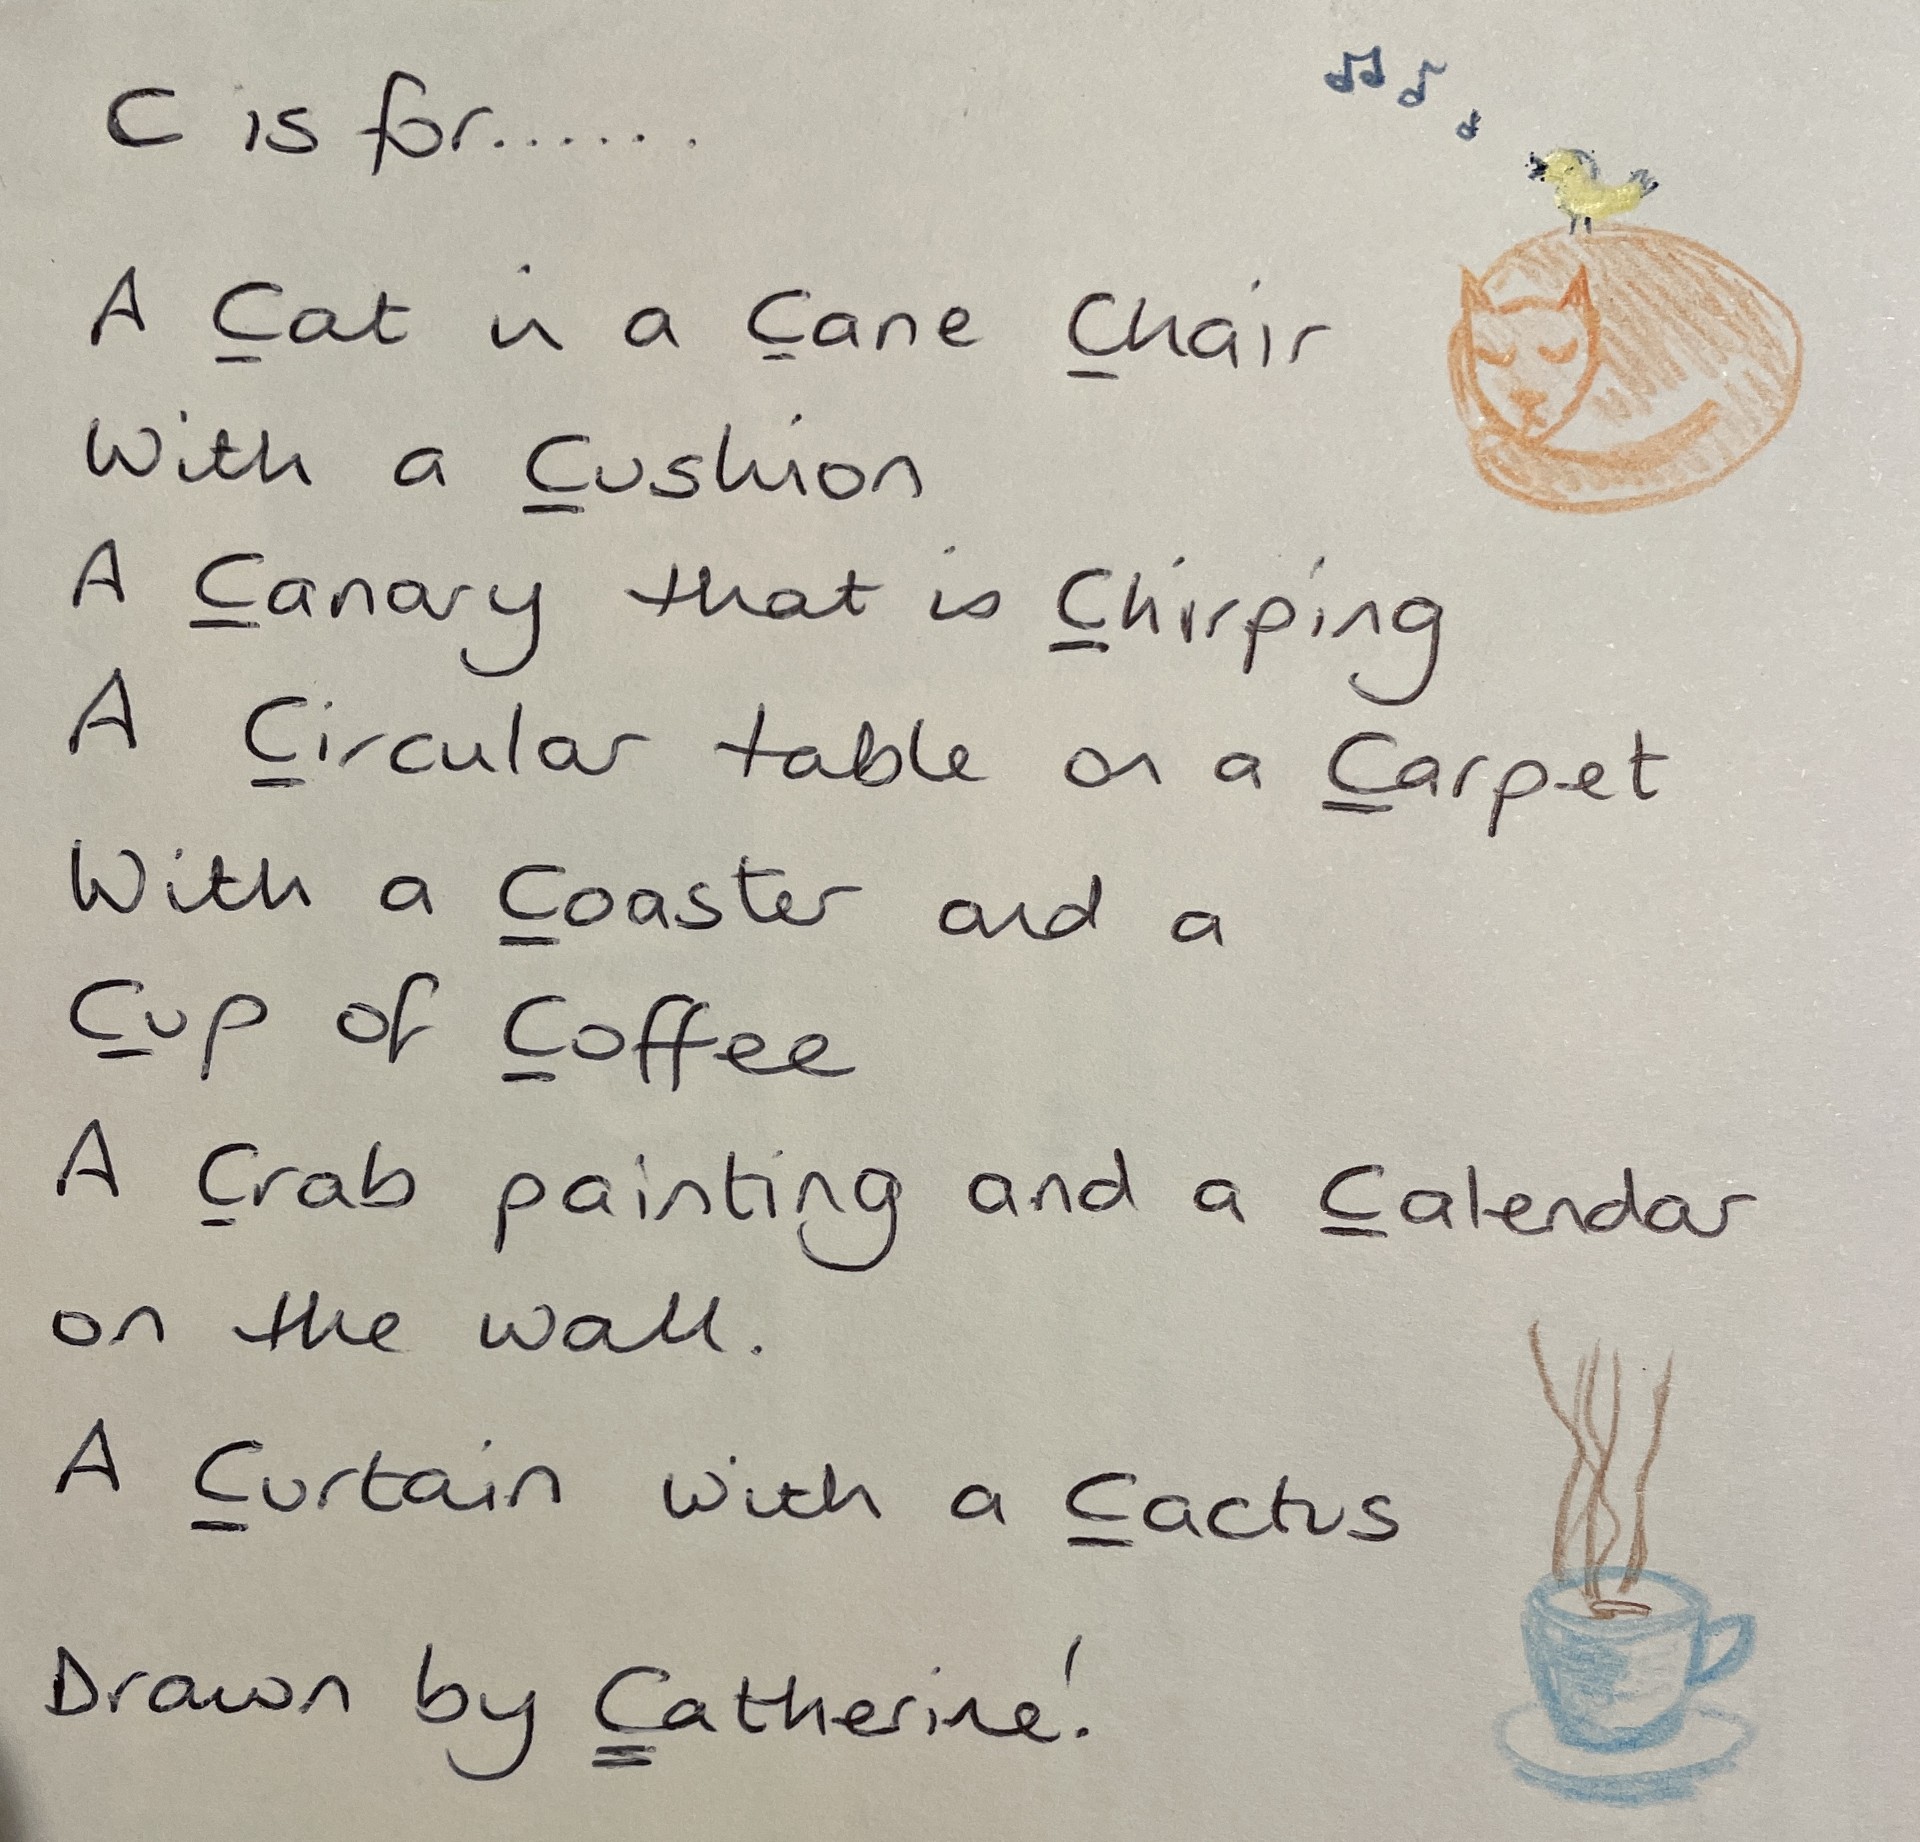 C is for......
A Cat in a Cane Chair
With a Cushion
A Canary that is Chirping
A Circular table on a Carpet
With a Coaster and a
Cup of Coffee
A Crab painting and a Calendar
on the wall.
A Curtain with a Cactus
Drawn by Catherine!